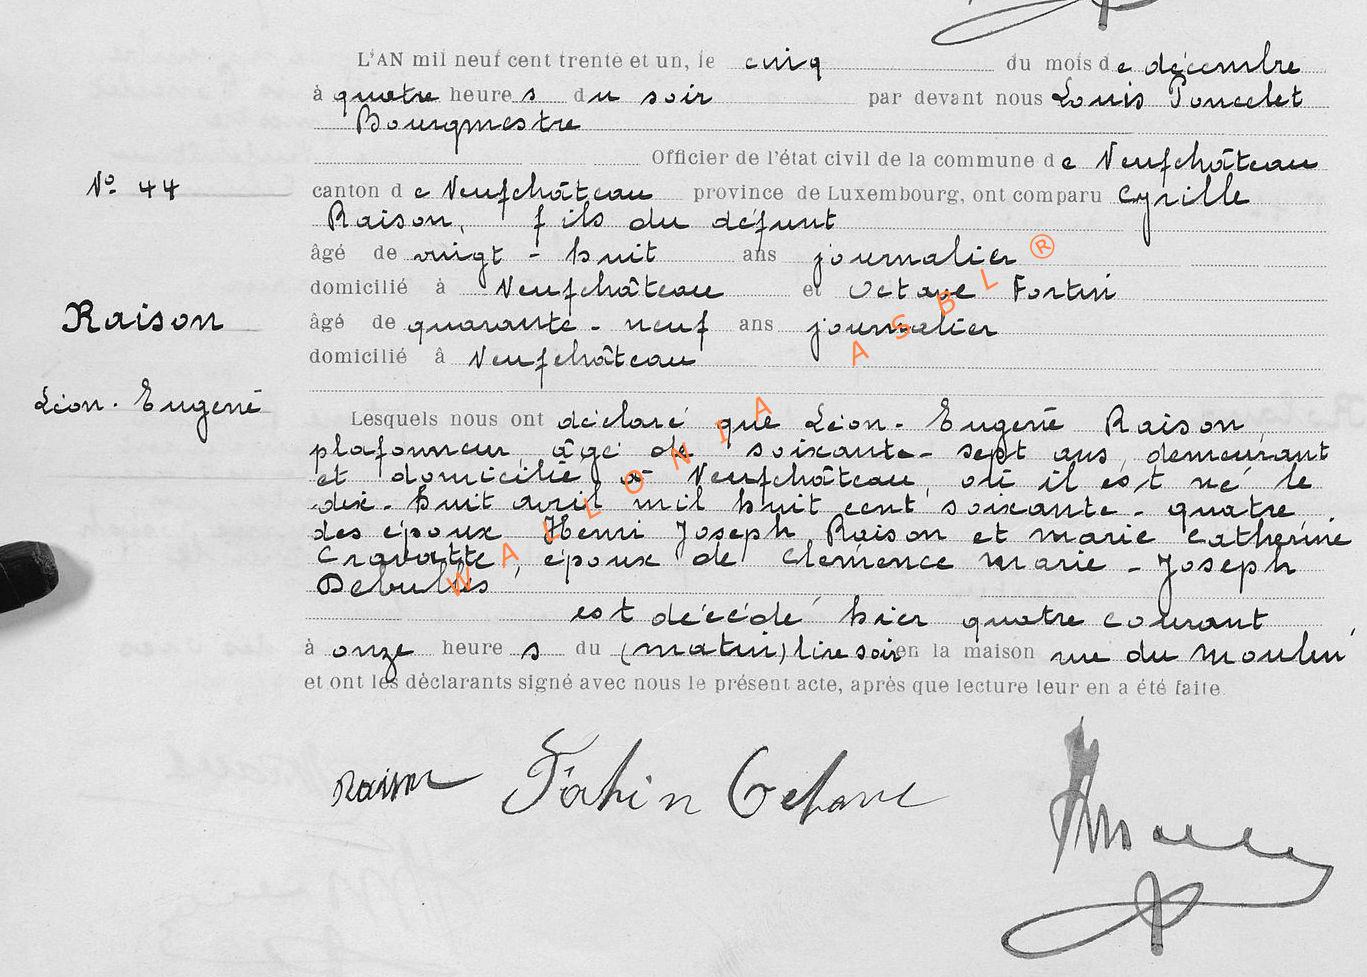 L'AN mil neuf cent trente et un, le cinq du mois de décembre
à quatre heures du soir par devant nous Louis Poncelet
Bourgmestre
Officier de l'état civil de la commune de Neufchâteau
No 44
canton de Neufchâteau province de Luxembourg, ont comparu Cyrille
Raison, fils du défunt
âgé de vingt-huit ans journalier
domicilié à Neufchâteau et Octave Fortin
Raison
âgé de quarante-neuf ans journalier
domicilié à Neufchâteau
Léon-Eugène
Lesquels nous ont déclaré que Léon-Eugène Raison,
plafonneur, âgé de soixante-sept ans, demeurant
et domicilié à Neufchâteau, où il est né le
dix-huit avril mil huit cent soixante-quatre
des époux Henri Joseph Raison et Marie Catherine
Cravatte, époux de Clémence Marie-Joseph
est décédé hier quatre courant
à onze heures du (matin) lire soir en la maison rue du Moulin,
et ont les déclarants signé avec nous le présent acte, après que lecture leur en a été faite.
Raison Octave
WALLONIA ASBL ®